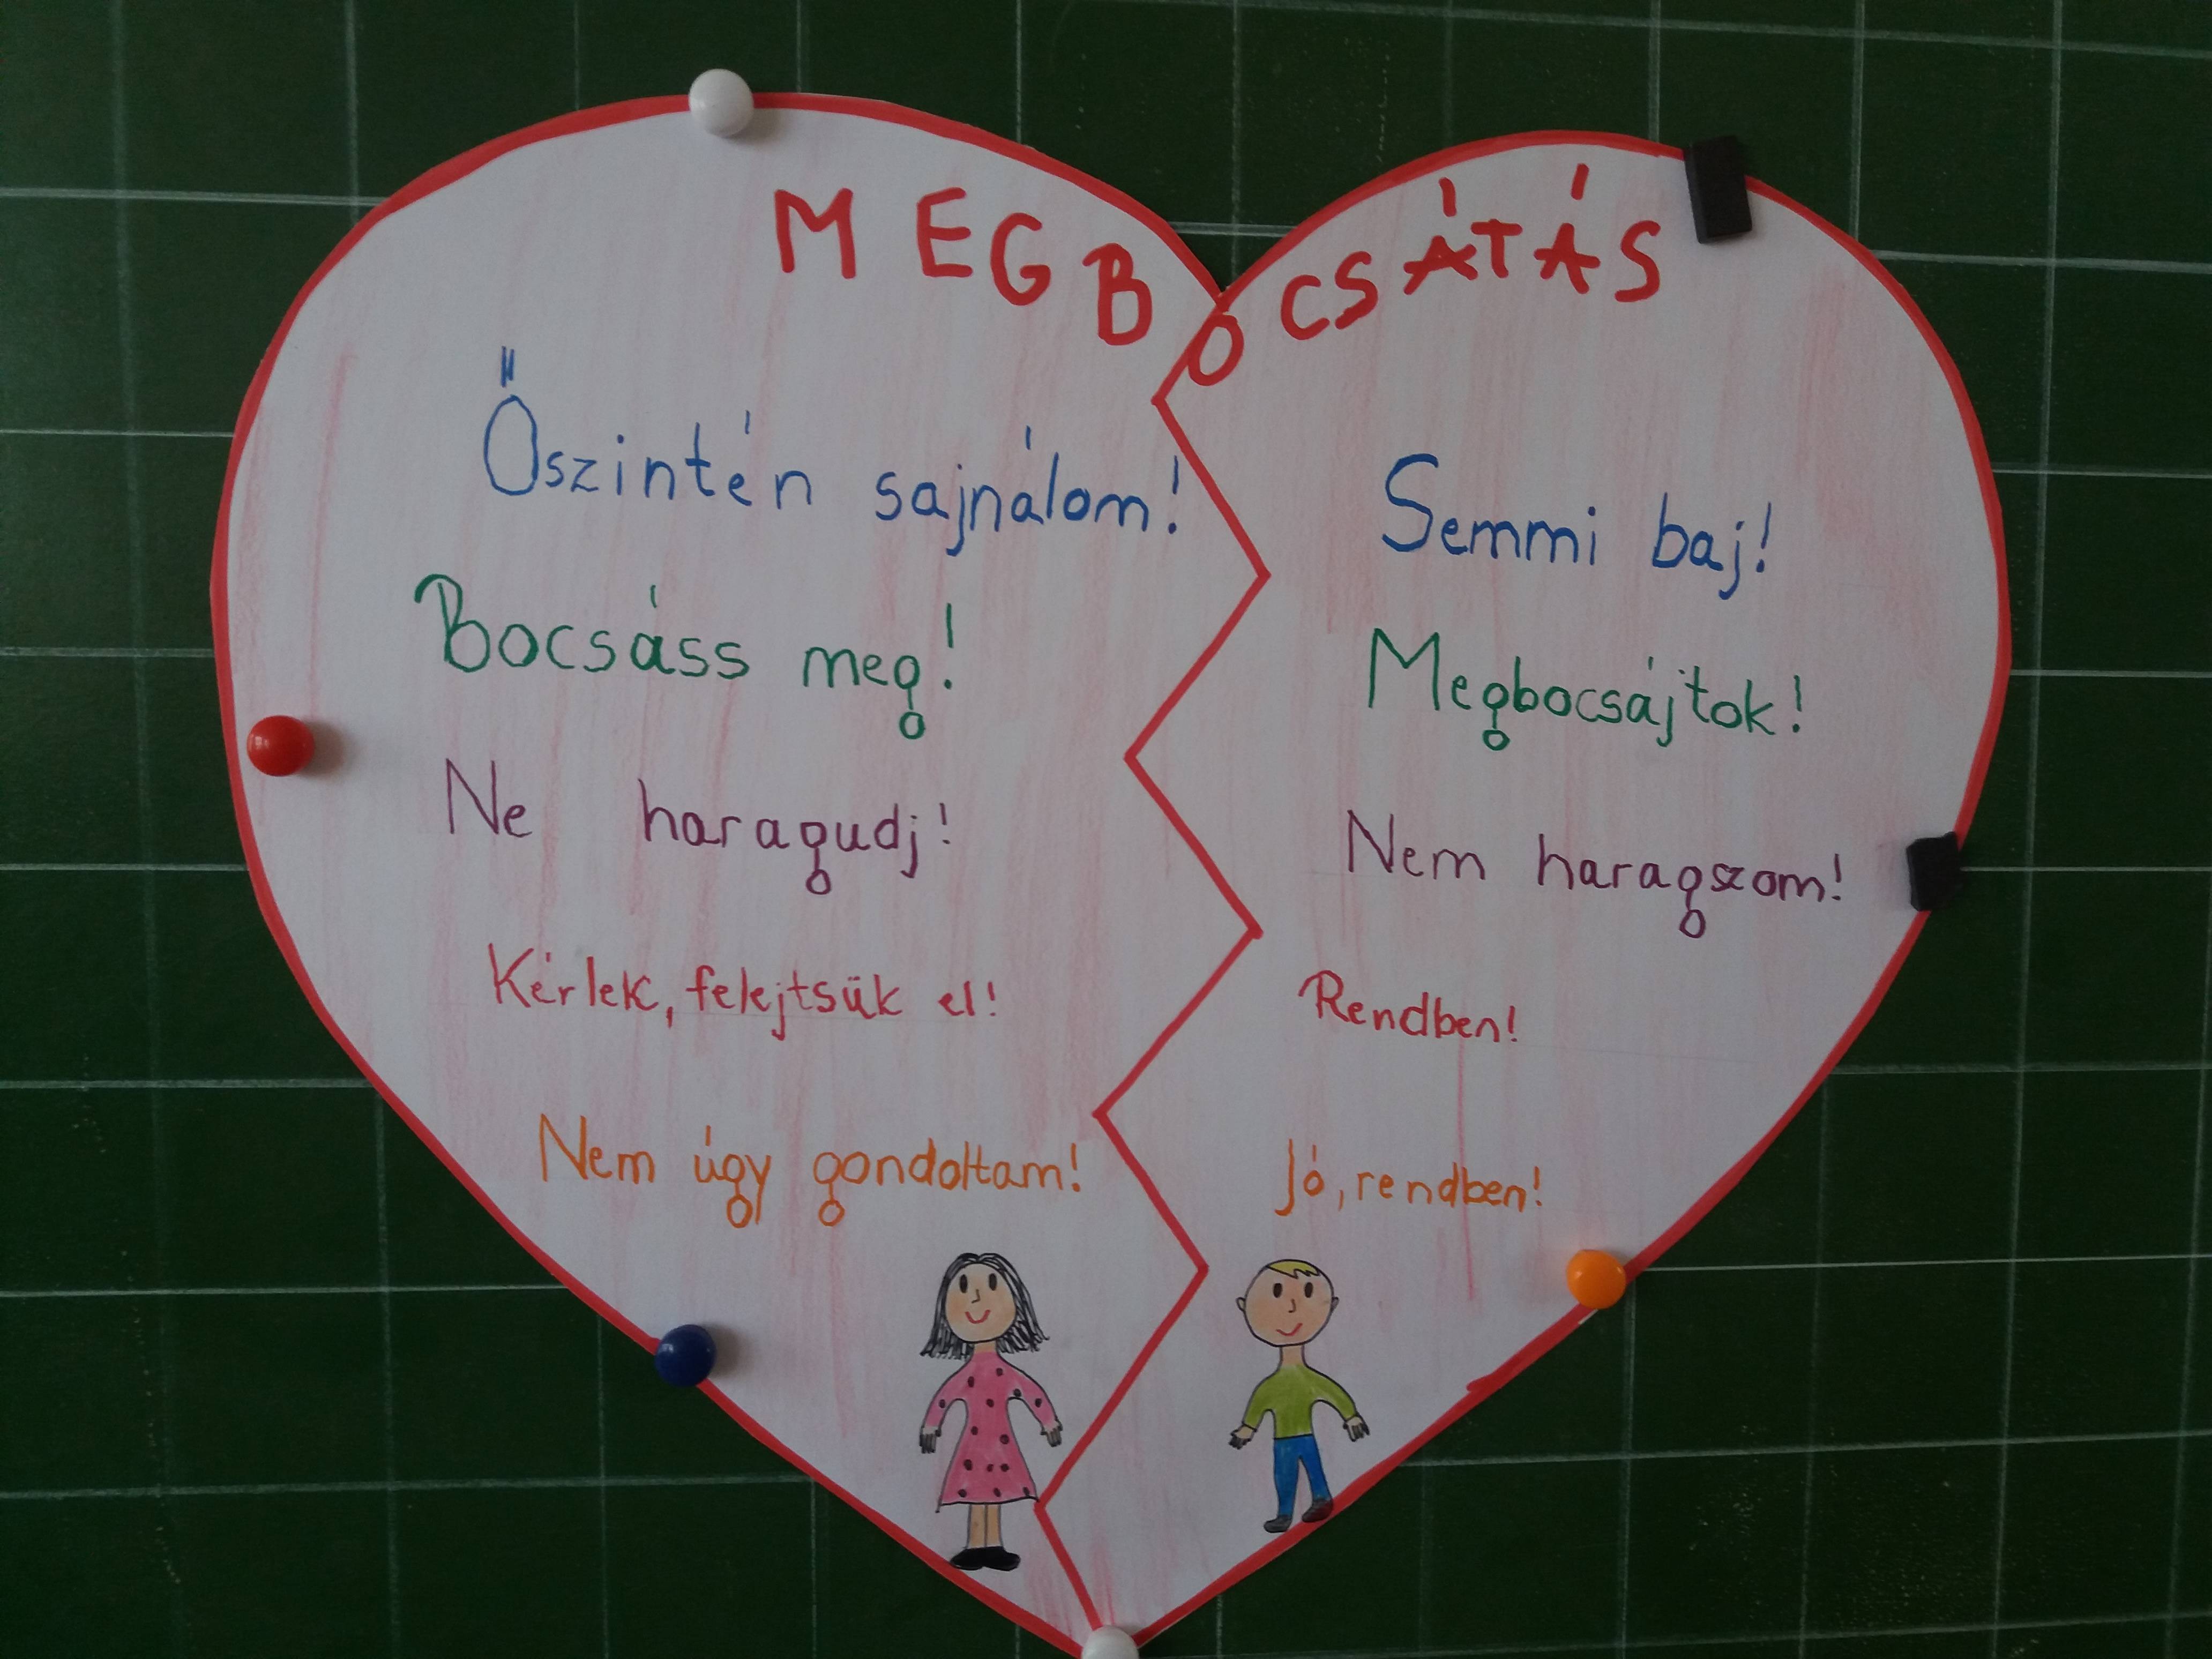 MEGBOCSÁTÁS
Őszintén sajnálom!
Bocsáss meg!
Ne haragudj!
Kérlek, felejtsük el!
Nem úgy gondoltam!
Semmi baj!
Megbocsájtok!
Nem haragszom!
Rendben!
Jó, rendben!